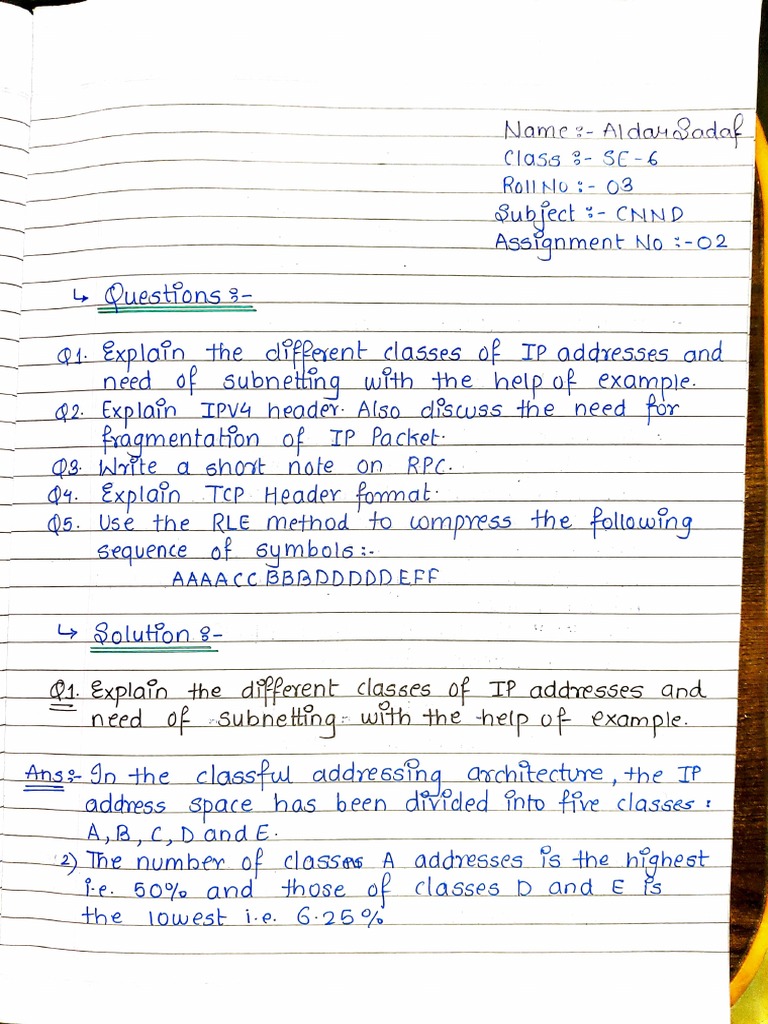 Name :- Aldar Sadaf
Class :- SE-6
Roll No :- 03
Subject :- CNND
Assignment No :-02
↳ Questions :-
Q1. Explain the different classes of IP addresses and
need of subnetting with the help of example.
Q2. Explain IPV4 header. Also discuss the need for
fragmentation of IP Packet.
Q3. Write a short note on RPC.
Q4. Explain TCP Header format.
Q5. Use the RLE method to compress the following
sequence of symbols :-
AAAACCBBBDDDDDEFF
↳ Solution :-
Q1. Explain the different classes of IP addresses and
need of subnetting with the help of example.
Ans :- In the classful addressing architecture, the IP
address space has been divided into five classes :
A, B, C, D and E.
2) The number of classes A addresses is the highest
i.e. 50% and those of classes D and E is
the lowest i.e. 6.25%